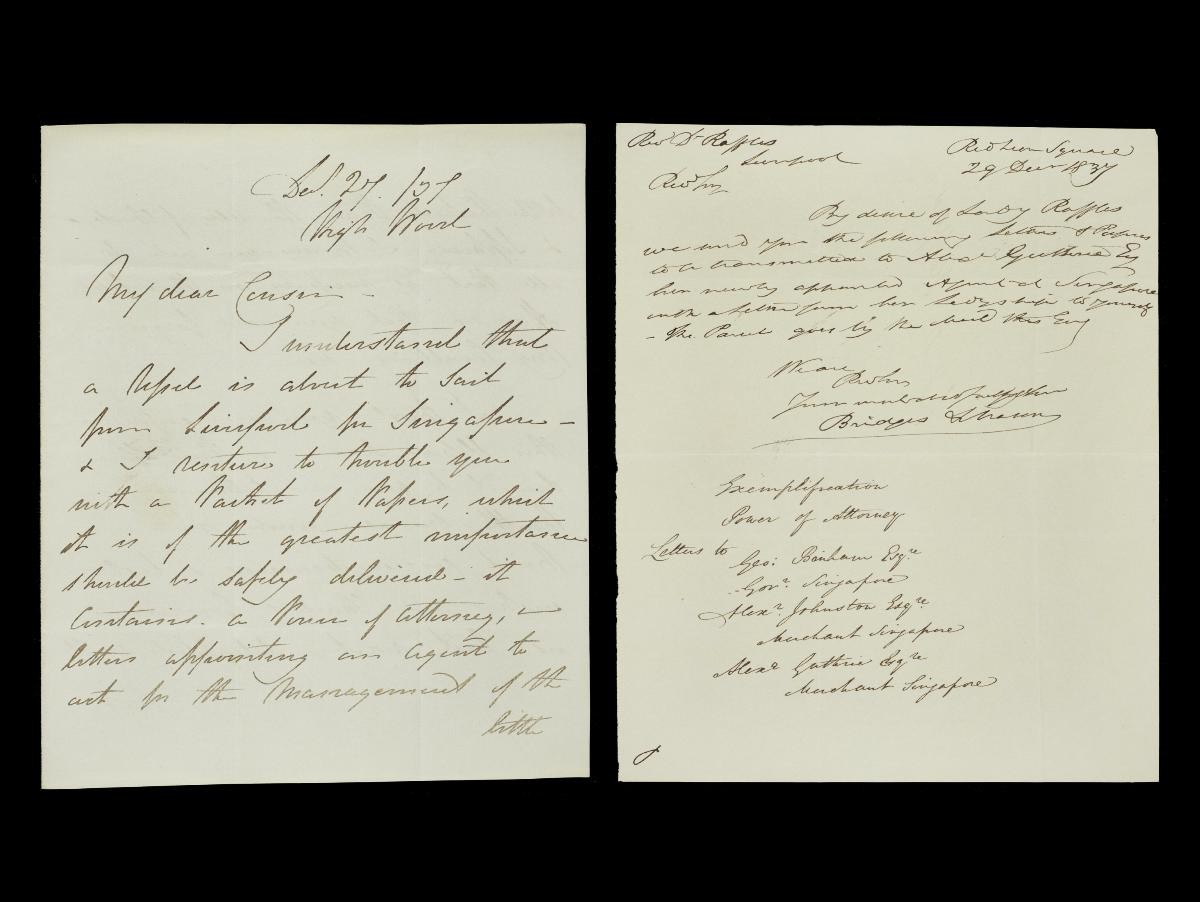 Dec. 27. /37
High Wood
My dear Cousin -
I understand that
a Vessel is about to sail
from Liverpool for Singapore -
& I venture to trouble you
with a Packet of Papers, which
it is of the greatest importance
should be safely delivered - it
contains a Power of Attorney, &
letters appointing an agent to
act for the Management of the
little
Revd Dr Raffles
Liverpool
Red Lion Square
29 Decr 1837
Revd Sir
By desire of Lady Raffles
we send you the following Letters & Papers
to be transmitted to Alexr Guthrie Esq
her newly appointed Agent at Singapore
with a Letter from her Ladyship to yourself
- The Parcel goes by the Mail this Evg
We are
Revd Sir
Your
Bridges &
Exemplification
Power of Attorney
Letters to
Geo: Bonham Esqre
Govr. Singapore
Alexr. Johnston Esqre.
Merchant Singapore
Alexr Guthrie Esqre
Merchant Singapore